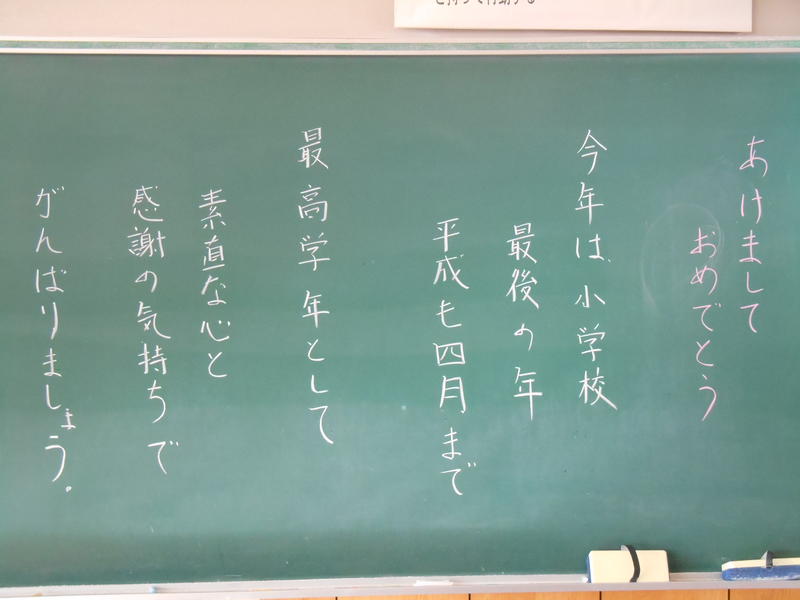 あけまして
おめでとう
今年は小学校
最後の年
平成も四月まで
最高学年として
素直な心と
感謝の気持ちで
がんばりましょう。